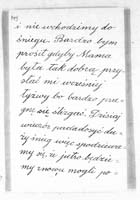 i nie wchodzimy do
śniegu. Bardzo bym
prosił gdyby Mama
była tak dobra przy-
słać mi wcześniej
łyżwy bo bardzo pra-
gnę się ślizgać. Dzisiaj
wieczór padał du-
ży śnieg więc spodziewa-
my się, że jutro będzie-
my znowu mogli po-